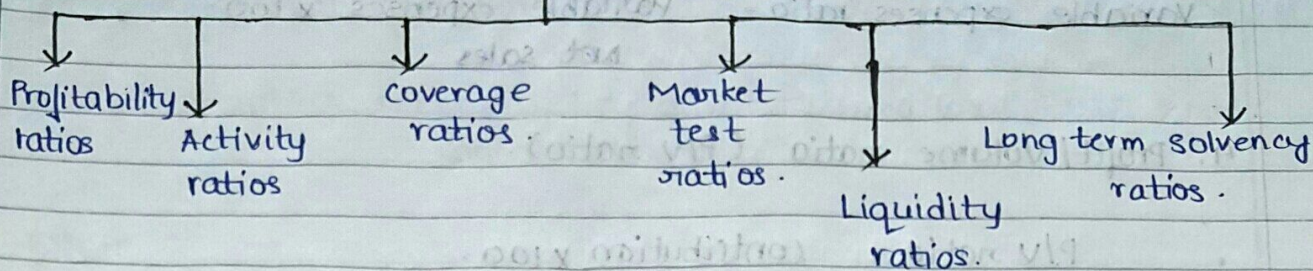 Profitability
ratios
Activity
ratios
coverage
ratios.
Market
test
ratios.
Liquidity
ratios.
Long term solvency
ratios.